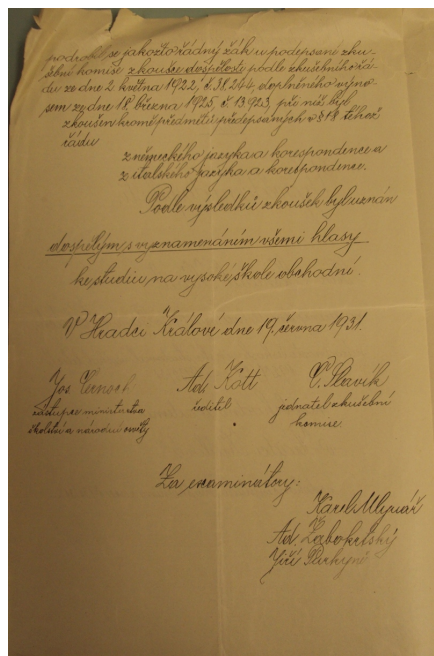 podrobil se jakožto řádný žák u podepsané zku-
šební komise zkoušce dospělosti podle zkušebního řá-
du ze dne 2. května 1922, č. 38.244, doplněného výno-
sem ze dne 18. března 1925, č. 13.923, při níž byl
zkoušen kromě předmětů předepsaných v § 18 téhož
řádu
z německého jazyka a korespondence a
z italského jazyka a korespondence.
Podle výsledků zkoušek byl uznán
dospělým s vyznamenáním všemi hlasy
ke studiu na vysoké škole obchodní.
V Hradci Králové dne 19. června 1931.
Jos. Černoch Ad. Kott V. Slavík
zástupce ministerstva ředitel jednatel zkušební
školství a národní osvěty komise.
Za examinátory:
Karel Mlynář
Ad. Zábokrtský
Jiří